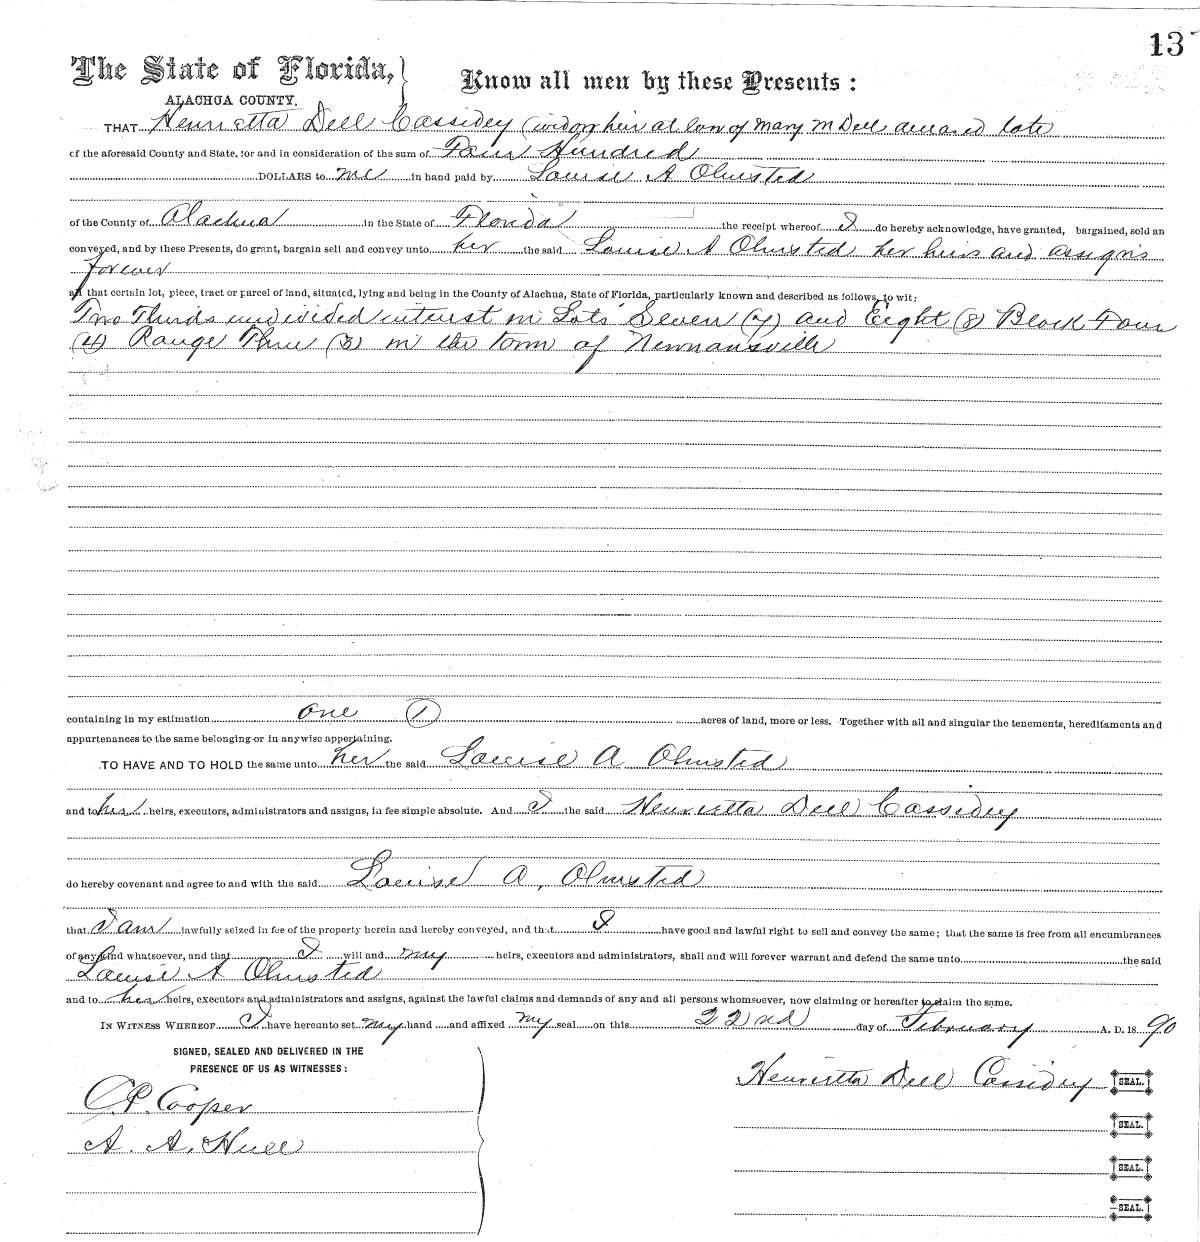 13
The State of Florida,
ALACHUA COUNTY.
Know all men by these Presents:
THAT Henrietta Dell Cassidey (widow heir at law of Mary M Dell deceased late
of the aforesaid County and State, for and in consideration of the sum of Four Hundred
DOLLARS to me in hand paid by Louise A Olmsted
of the County of Alachua in the State of Florida the receipt whereof I do hereby acknowledge, have granted, bargained, sold an
conveyed, and by these Presents, do grant, bargain sell and convey unto her the said Louise A Olmsted her heirs and assigns
forever
all that certain lot, piece, tract or parcel of land, situated, lying and being in the County of Alachua, State of Florida, particularly known and described as follows, to wit:
Two Thirds undivided interest in Lots Seven (7) and Eight (8) Block Four
(4) Range Three (3) in the town of Newnansville
containing in my estimation one (1) acres of land, more or less. Together with all and singular the tenements, hereditaments and
appurtenances to the same belonging or in anywise appertaining.
TO HAVE AND TO HOLD the same unto her the said Louise A Olmsted
and to her heirs, executors, administrators and assigns, in fee simple absolute. And I the said Henrietta Dell Cassidey
do hereby covenant and agree to and with the said Louise A. Olmsted
that I am lawfully seized in fee of the property herein and hereby conveyed, and that I have good and lawful right to sell and convey the same; that the same is free from all encumbrances
of any kind whatsoever, and that I will and my heirs, executors and administrators, shall and will forever warrant and defend the same unto the said
Louise A Olmsted
and to her heirs, executors and administrators and assigns, against the lawful claims and demands of any and all persons whomsoever, now claiming or hereafter to claim the same.
IN WITNESS WHEREOF I have hereunto set my hand and affixed my seal on this 22nd day of February A. D. 18 90
SIGNED, SEALED AND DELIVERED IN THE
PRESENCE OF US AS WITNESSES:
Henrietta Dell Cassidey SEAL.
C. P. Cooper
SEAL.
A. A. Hull
SEAL.
SEAL.